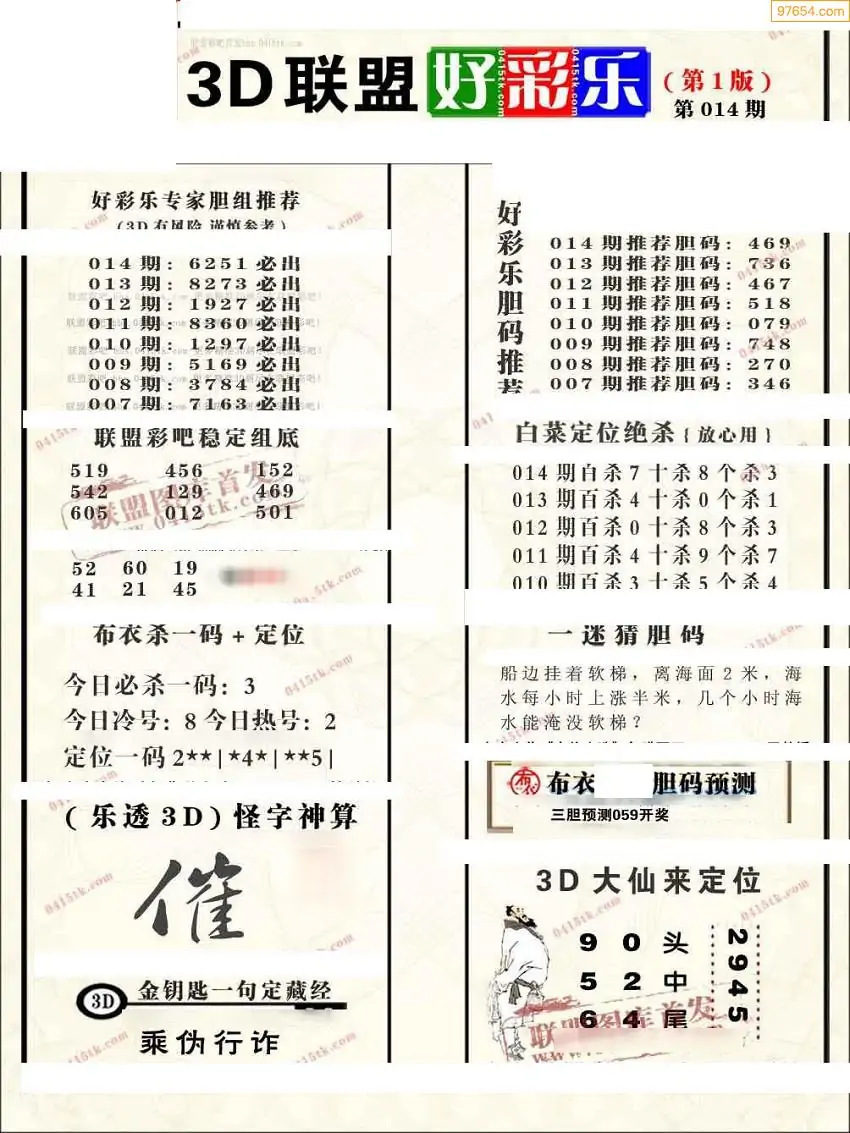 97654.com
3D联盟好彩乐
(第1版)
第014期
好彩乐专家胆组推荐
(3D有风险 谨慎参考)
014期：6251必出
013期：8273必出
012期：1927必出
011期：8360必出
010期：1297必出
009期：5169必出
008期：3784必出
007期：7163必出
联盟彩吧稳定组底
519 456 152
542 129 469
605 012 501
52 60 19
41 21 45
布衣杀一码+定位
今日必杀一码：3
今日冷号：8 今日热号：2
定位一码2**|*4*|**5|
(乐透3D)怪字神算
催
3D 金钥匙一句定藏经
乘伪行诈
好彩乐胆码推荐
014期推荐胆码：469
013期推荐胆码：736
012期推荐胆码：467
011期推荐胆码：518
010期推荐胆码：079
009期推荐胆码：748
008期推荐胆码：270
007期推荐胆码：346
白菜定位绝杀{放心用}
014期百杀7十杀8个杀3
013期百杀4十杀0个杀1
012期百杀0十杀8个杀3
011期百杀4十杀9个杀7
010期百杀3十杀5个杀4
一迷猜胆码
船边挂着软梯，离海面2米，海
水每小时上涨半米，几个小时海
水能淹没软梯？
布衣 胆码预测
三胆预测059开奖
3D大仙来定位
9 0 头
5 2 中
6 4 尾
2945
联盟图库首发
www.0415tk.com
0415tk.com